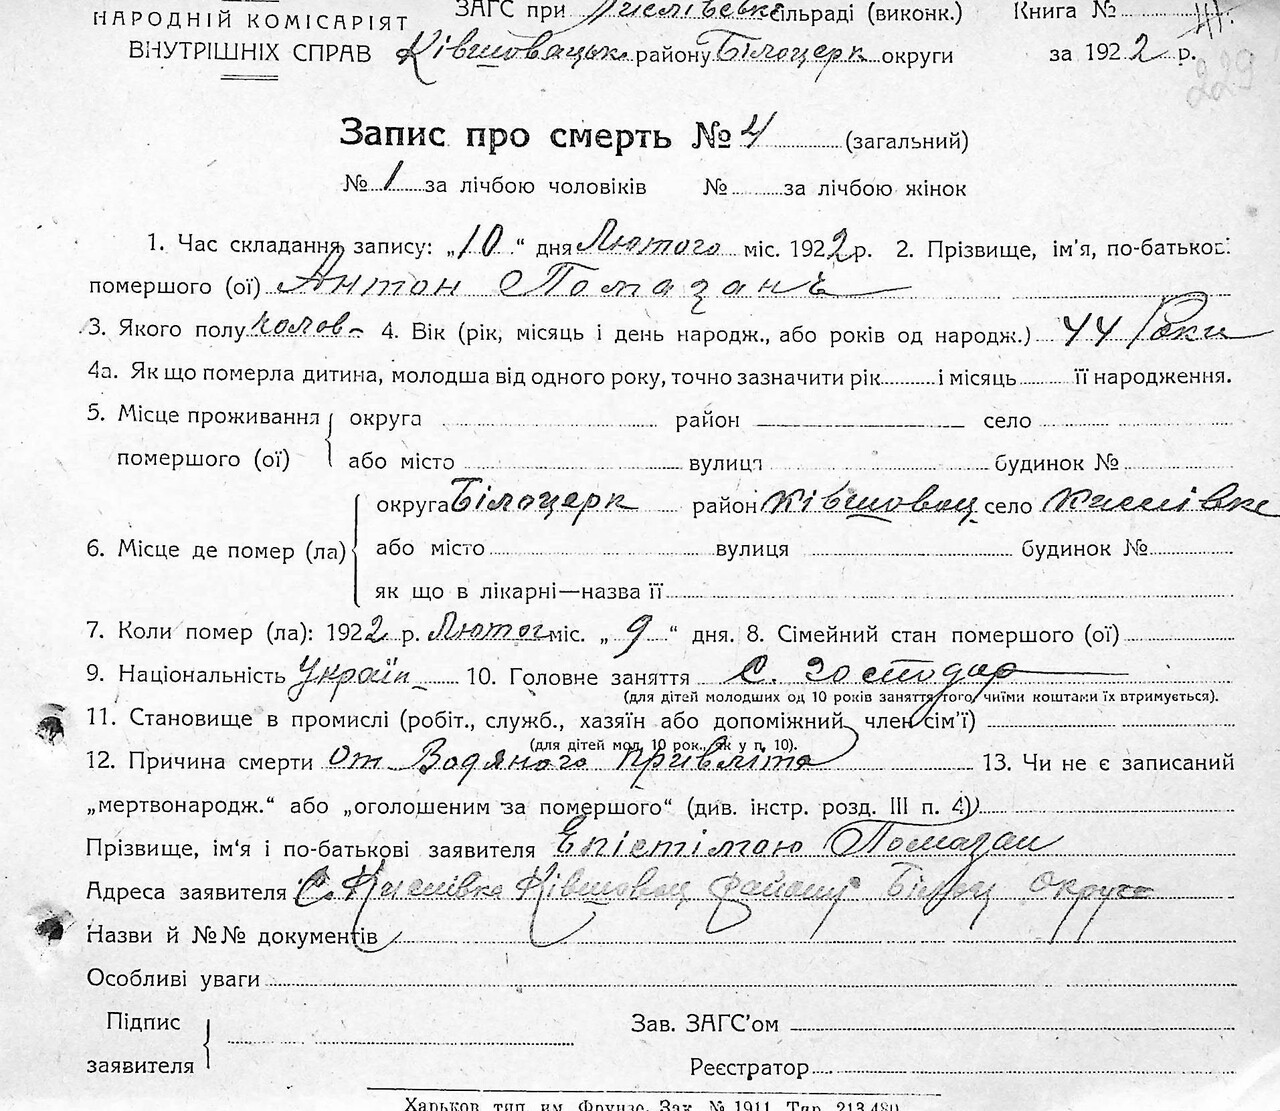 НАРОДНІЙ КОМІСАРІЯТ ЗАГС при сільраді (виконк.) Книга №
ВНУТРІШНІХ СПРАВ Ківшовацьк. району Білоцерк округи за 1922 р.
229
Запис про смерть № 4 (загальний)
№ 1 за лічбою чоловіків № за лічбою жінок
1. Час складання запису: „10“ дня Лютого міс. 1922 р. 2. Прізвище, ім'я, по-батькові
помершого (ої) Антон Помазань
3. Якого полу 4. Вік (рік, місяць і день народж., або років од народж.) 44 Роки
4а. Як що померла дитина, молодша від одного року, точно зазначити рік і місяць її народження.
5. Місце проживання округа район село
помершого (ої) або місто вулиця будинок №
округа Білоцерк район Ківшовац село Кислівка
6. Місце де помер (ла) або місто вулиця будинок №
як що в лікарні—назва її
7. Коли помер (ла): 1922 р. Лютог міс. „9“ дня. 8. Сімейний стан помершого (ої)
9. Національність Україн 10. Головне заняття С. господар
(для дітей молодших од 10 років заняття того, чиїми коштами їх втримується).
11. Становище в промислі (робіт., служб., хазяїн або допоміжний член сім'ї)
(для дітей мол. 10 рок., як у п. 10).
12. Причина смерти от Водяного 13. Чи не є записаний
„мертвонародж.“ або „оголошеним за помершого“ (див. інстр. розд. III п. 4)
Прізвище, ім'я і по-батькові заявителя Епістімою Помазан
Адреса заявителя С. Кислівка Ківшовац району Білоц округи
Назви й №№ документів
Особливі уваги
Підпис Зав. ЗАГС'ом
заявителя Реєстратор
Харьков тип. им. Фрунзе. Зак. № 1911. Тир. 213.480